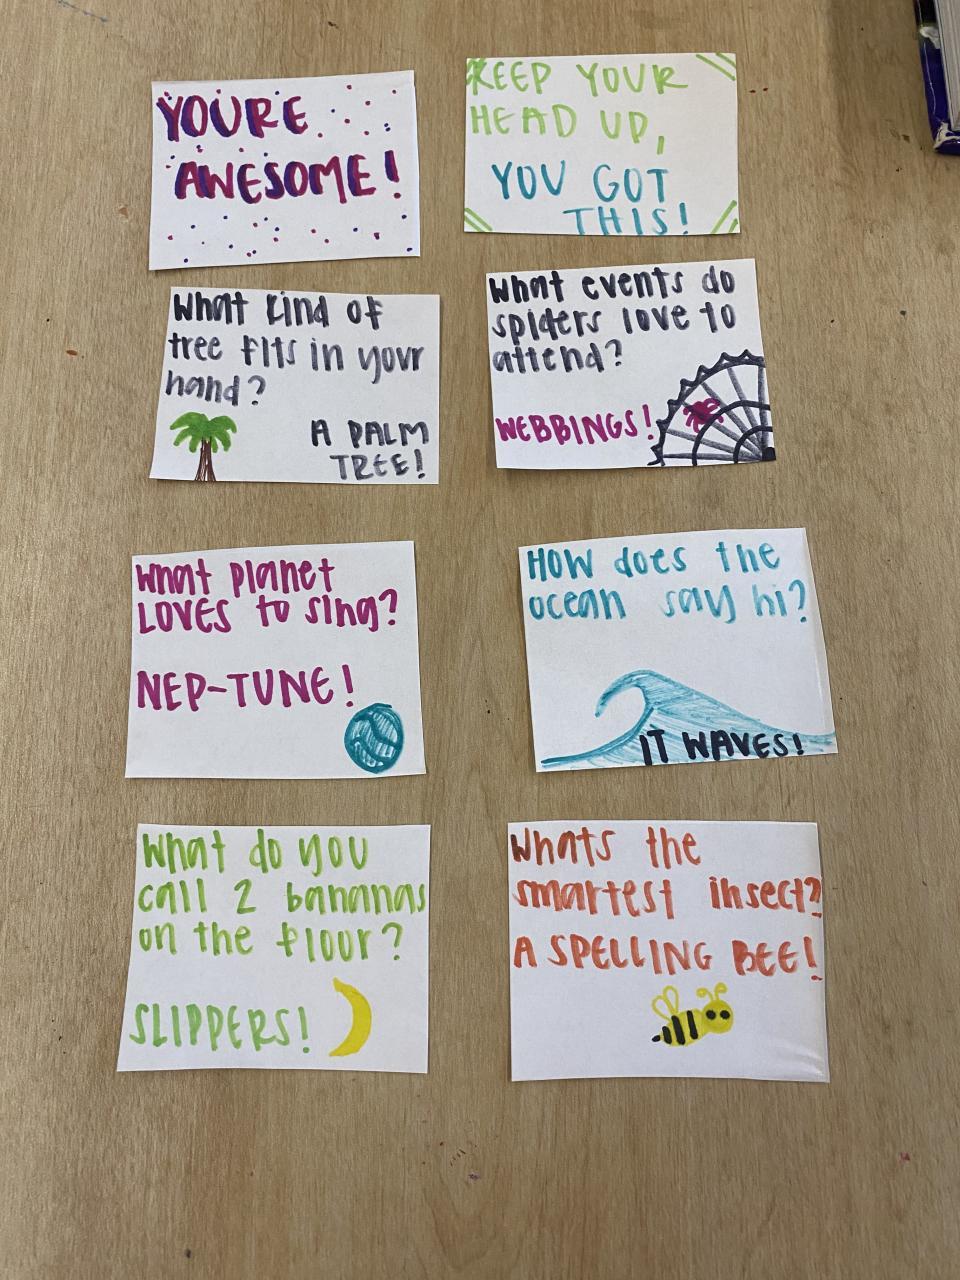 YOURE
AWESOME!
KEEP YOUR
HEAD UP,
YOU GOT
THIS!
What kind of
tree fits in your
hand?
A PALM
TREE!
What events do
spiders love to
attend?
WEBBINGS!
What planet
LOVES to sing?
NEP-TUNE!
HOW does the
ocean say hi?
IT WAVES!
What do you
call 2 bananas
on the flour?
SLIPPERS!
Whats the
smartest insect?
A SPELLING BEE!